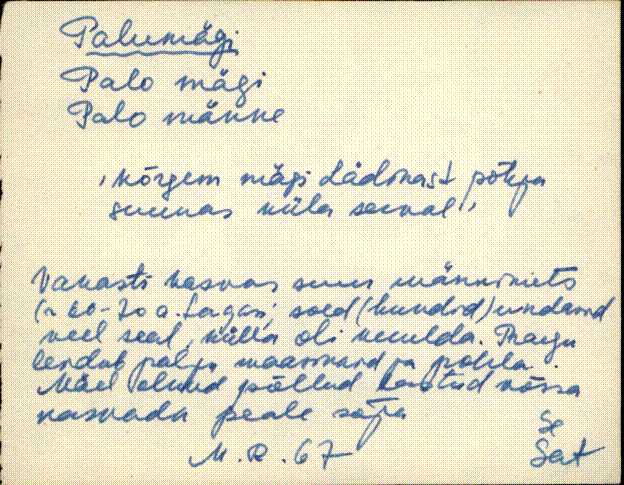 Palumägi
Palo mägi
Palo männe
'kõrgem mägi Lädinast põhja
suunas küla serval'
Vanasti kasvas suur männimets
(~ 60-70 a. tagasi; soed (hundid) undasid
veel seal, külla oli kuulda. Praegu
leidub palju maasikaid ja pohla.
Mäel olnud põllud lastud võssa
kasvada peale sõja
M. R. 67
Se